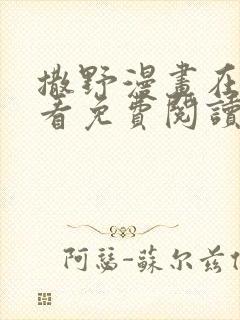 撒野漫畫在
看免費閱讀
阿瑟-蘇尔兹